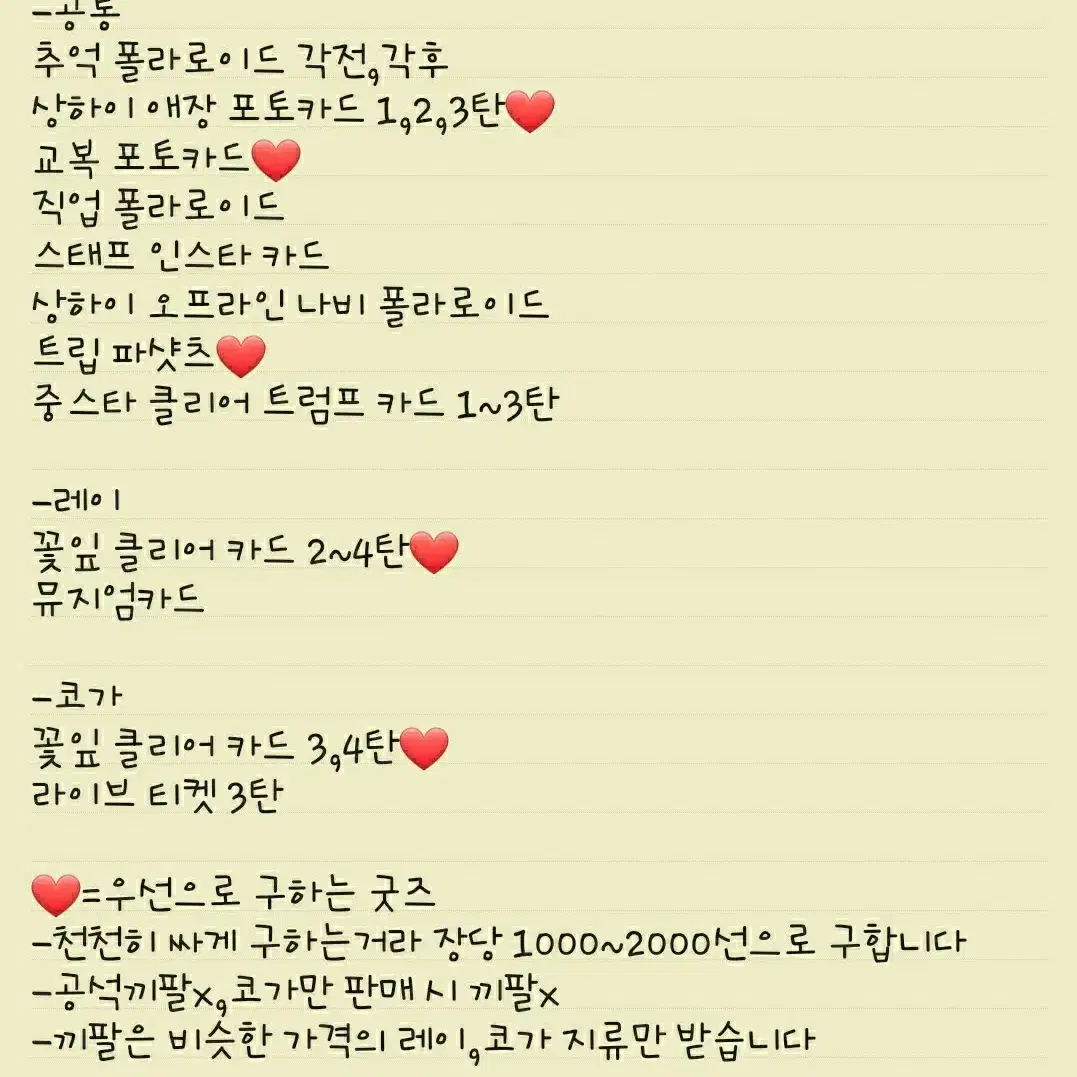 -공통
추억 폴라로이드 각전,각후
상하이 애장 포토카드 1,2,3탄❤️
교복 포토카드❤️
직업 폴라로이드
스태프 인스타 카드
상하이 오프라인 나비 폴라로이드
트립 파샷츠❤️
중스타 클리어 트럼프 카드 1~3탄
-레이
꽃잎 클리어 카드 2~4탄❤️
뮤지엄카드
-코가
꽃잎 클리어 카드 3,4탄❤️
라이브 티켓 3탄
❤️=우선으로 구하는 굿즈
-천천히 싸게 구하는거라 장당 1000~2000선으로 구합니다
-공석끼팔x,코가만 판매 시 끼팔x
-끼팔은 비슷한 가격의 레이,코가 지류만 받습니다